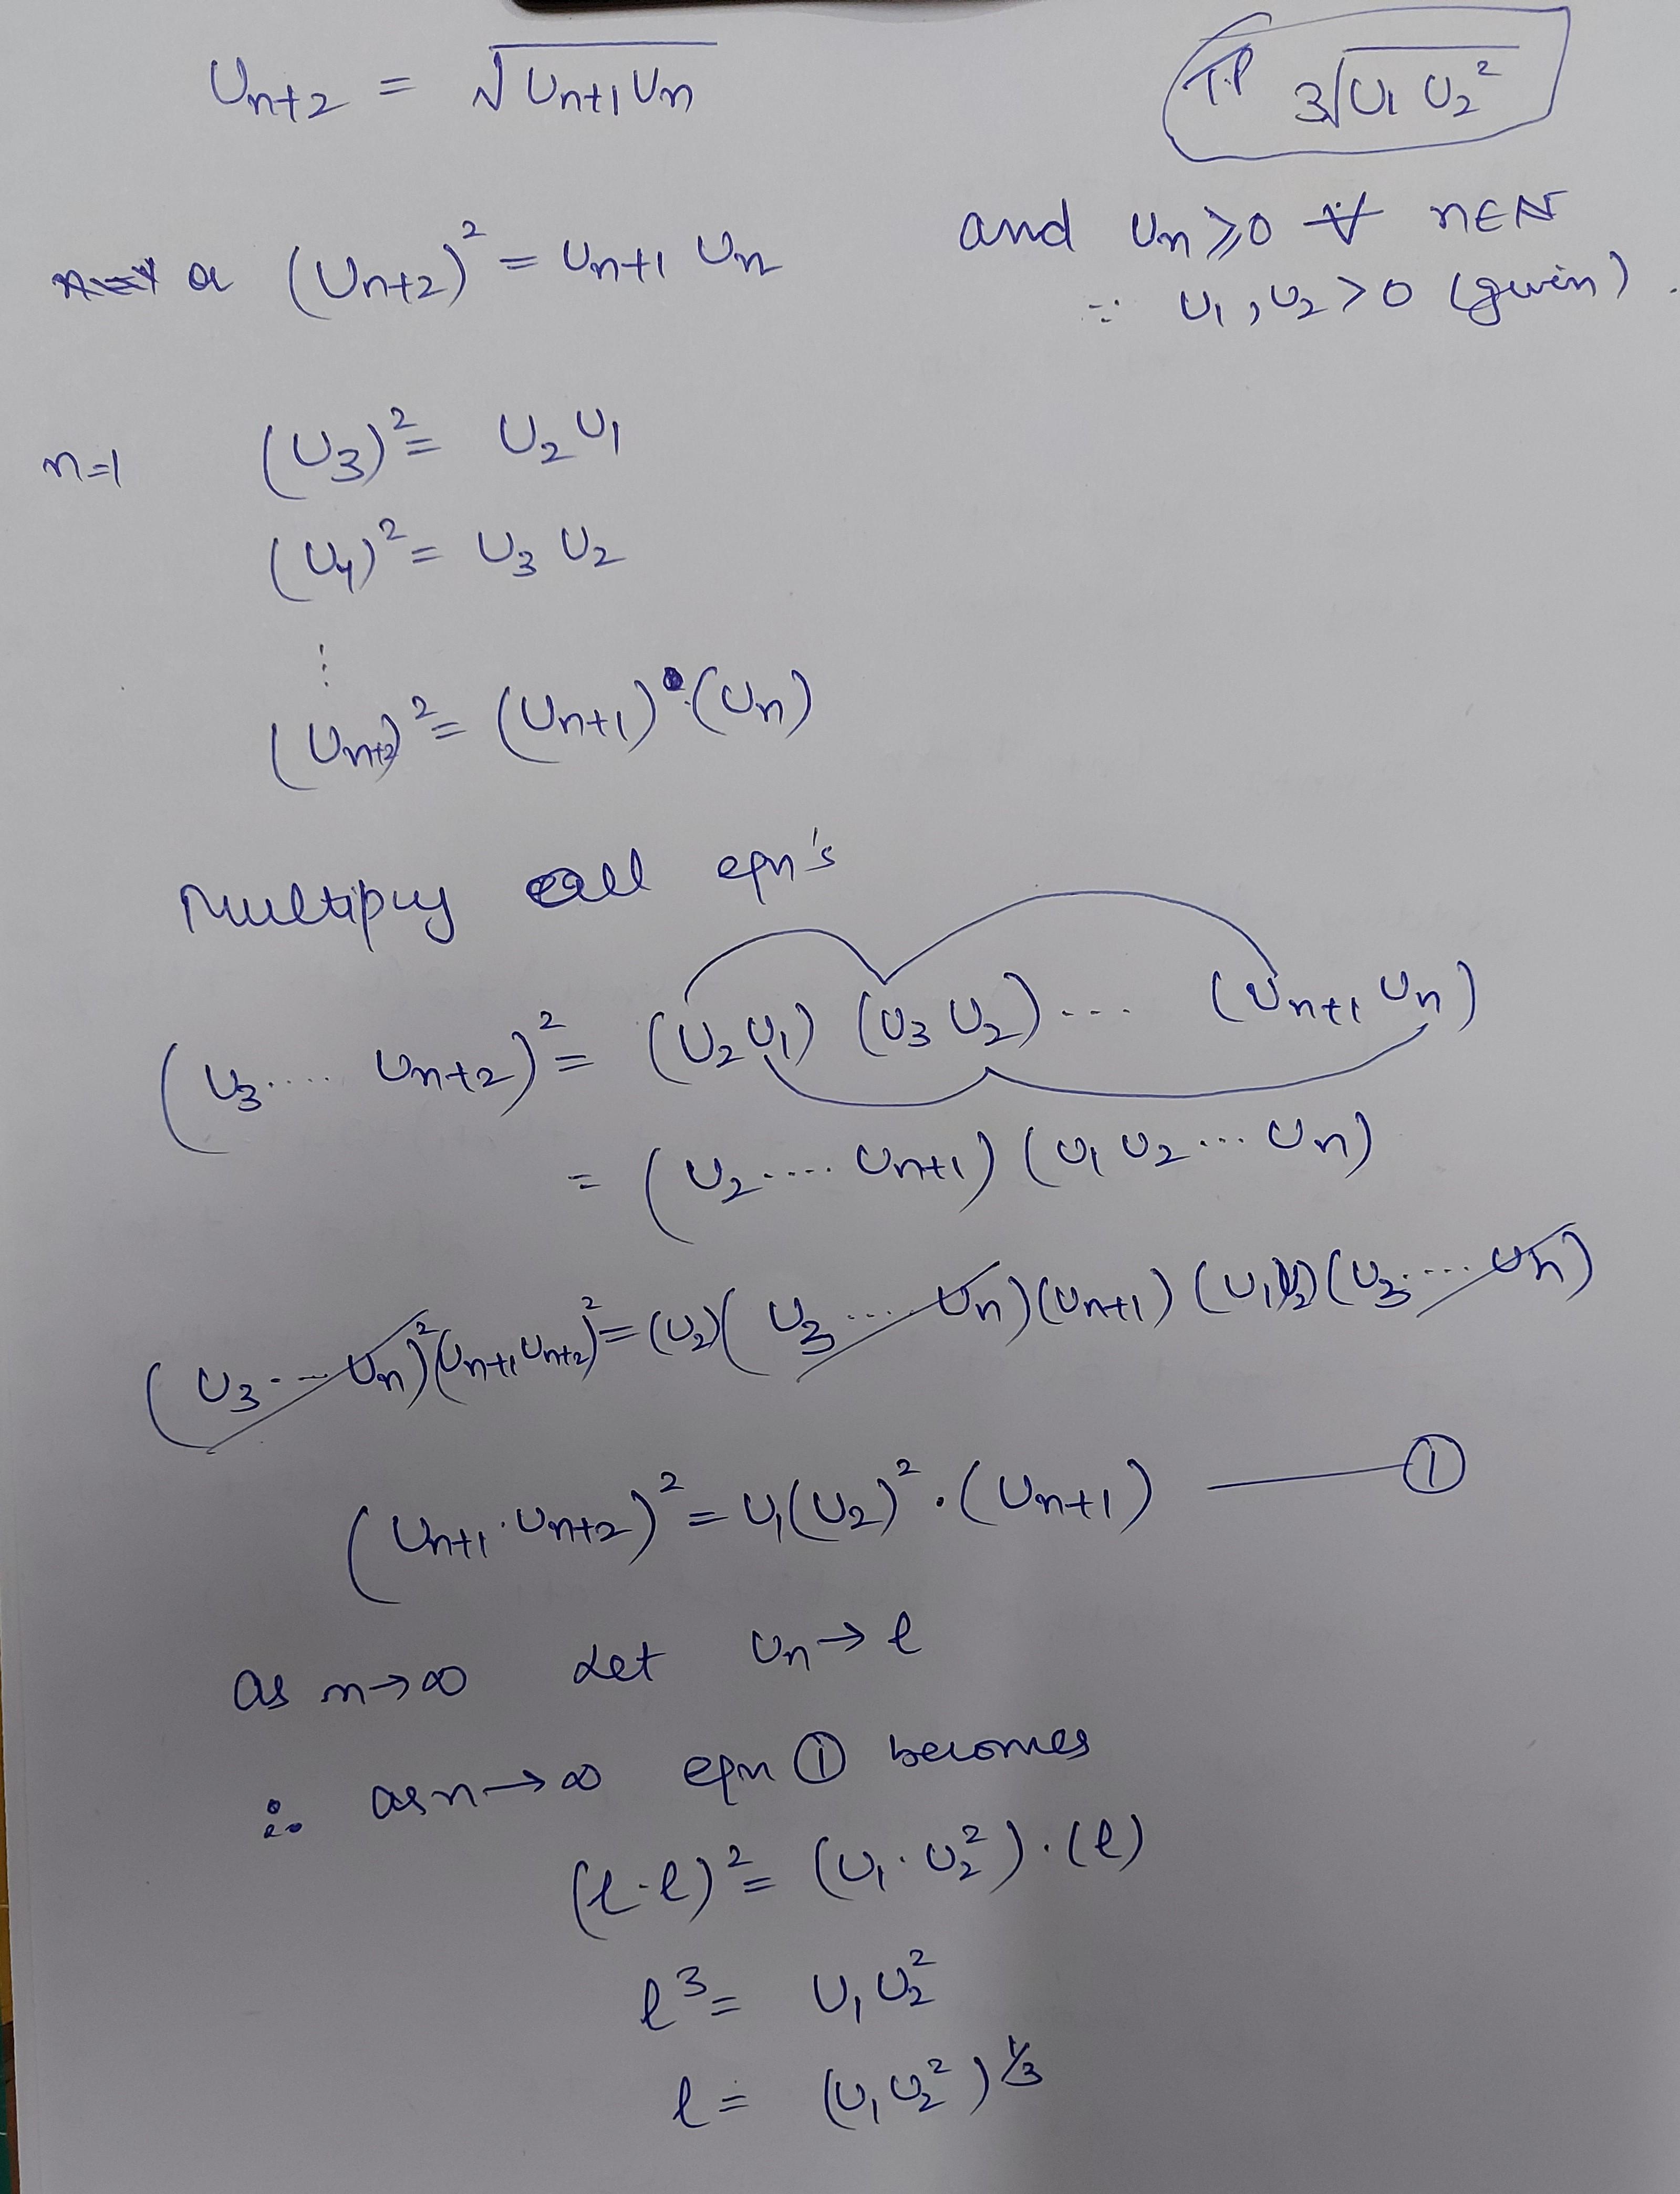 U_{n+2} = √(U_{n+1} U_n)
T.P ∛(U_1 U_2^2)
or (U_{n+2})^2 = U_{n+1} U_n
and U_n ⩾ 0 ∀ n∈N
∵ U_1, U_2 > 0 (given).
n=1 (U_3)^2 = U_2 U_1
(U_4)^2 = U_3 U_2
⋮
(U_{n+2})^2 = (U_{n+1})·(U_n)
Multiply all eqn's
(U_3 .... U_{n+2})^2 = (U_2 U_1) (U_3 U_2) .... (U_{n+1} U_n)
= (U_2 ..... U_{n+1}) (U_1 U_2 .... U_n)
(U_3 .... U_n)^2 (U_{n+1} U_{n+2})^2 = (U_2)(U_3 .... U_n)(U_{n+1}) (U_1 U_2)(U_3 .... U_n)
(U_{n+1}·U_{n+2})^2 = U_1(U_2)^2·(U_{n+1}) —— ①
as n→∞ Let U_n → l
∴ as n→∞ eqn ① becomes
(l·l)^2 = (U_1·U_2^2)·(l)
l^3 = U_1 U_2^2
l = (U_1 U_2^2)^{1/3}